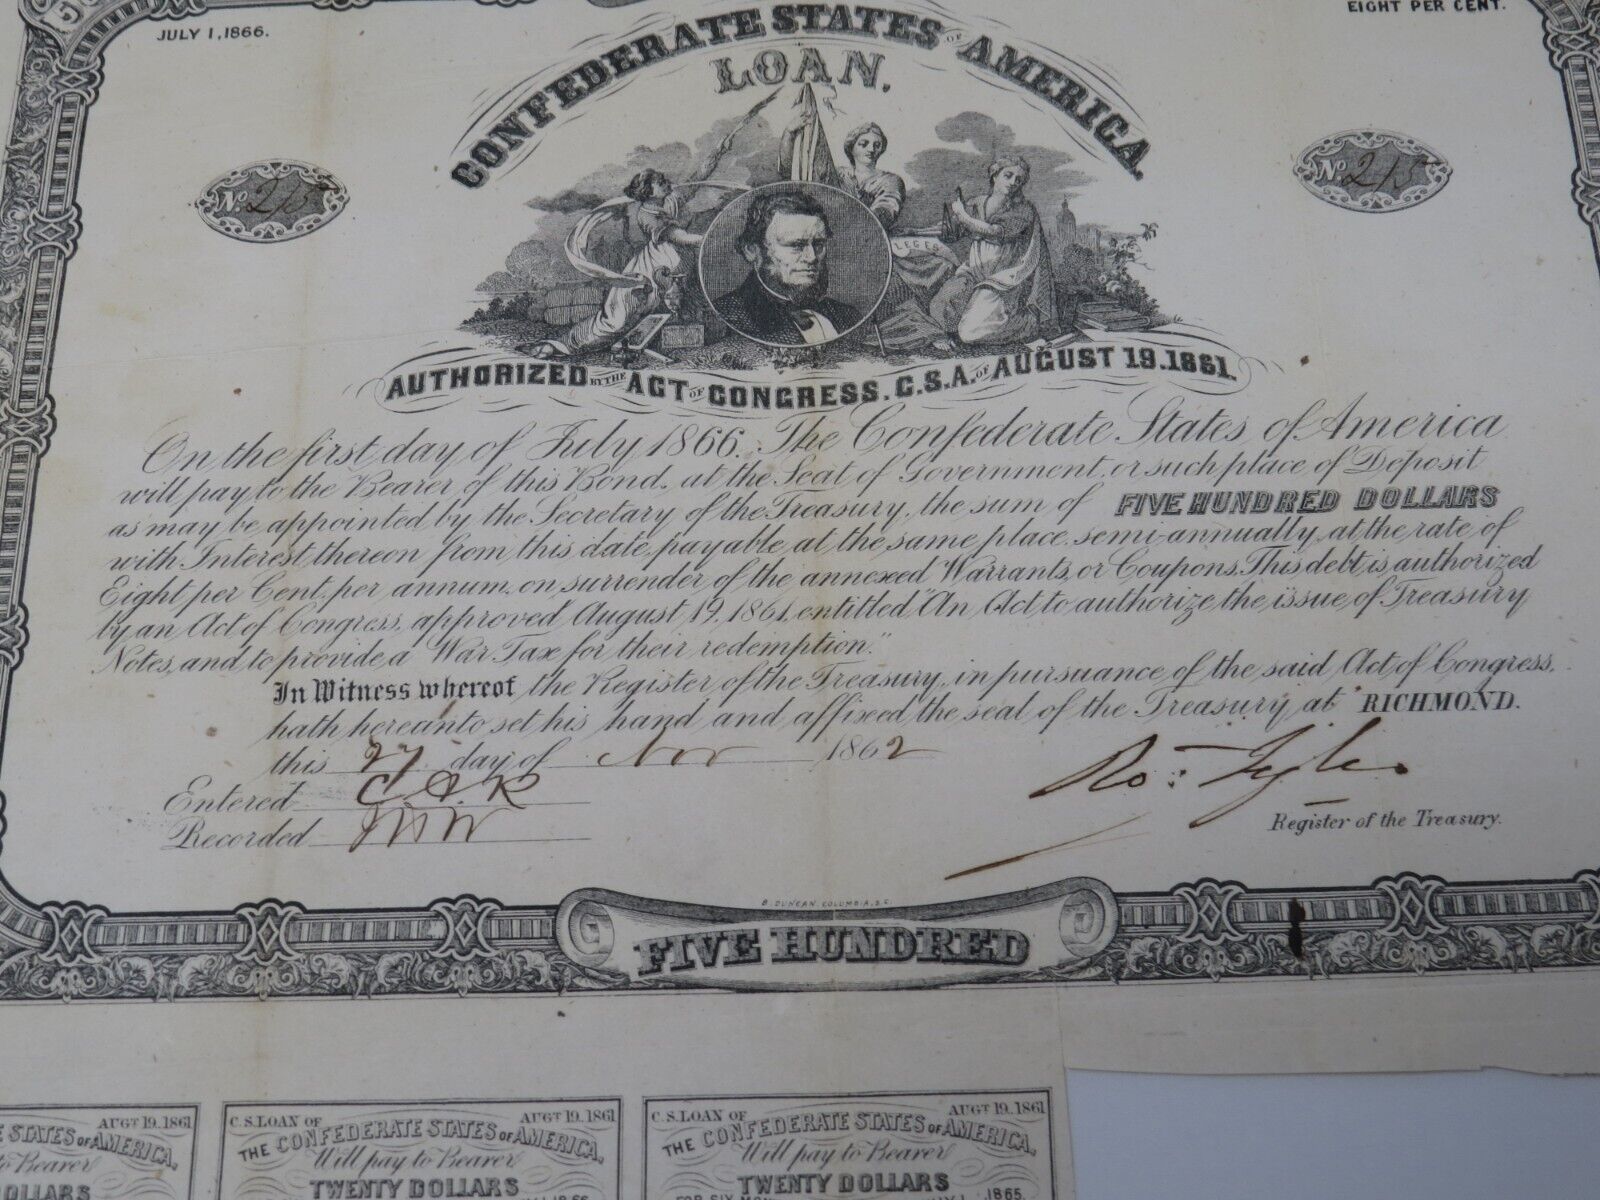 JULY 1, 1866.
EIGHT PER CENT.
CONFEDERATE STATES OF AMERICA
LOAN.
No. 215
No. 215
LEGES
AUTHORIZED BY THE ACT OF CONGRESS, C.S.A. OF AUGUST 19. 1861.
On the first day of July 1866. The Confederate States of America
will pay to the Bearer of this Bond, at the Seat of Government, or such place of Deposit
as may be appointed by the Secretary of the Treasury, the sum of FIVE HUNDRED DOLLARS
with Interest thereon from this date, payable at the same place, semi-annually, at the rate of
Eight per Cent. per annum, on surrender of the annexed Warrants, or Coupons. This debt is authorized
by an Act of Congress, approved August 19, 1861, entitled "An Act to authorize the issue of Treasury
Notes, and to provide a War Tax for their redemption."
In Witness whereof, the Register of the Treasury, in pursuance of the said Act of Congress,
hath hereunto set his hand and affixed the seal of the Treasury, at RICHMOND.
this 27 day of Nov 1862
Entered C.A.R
Recorded
Ro: Tyler
Register of the Treasury.
B. DUNCAN. COLUMBIA, S.C.
FIVE HUNDRED
AUGT 19. 1861
STATES OF AMERICA.
to Bearer
C. S. LOAN OF AUGT 19. 1861
THE CONFEDERATE STATES OF AMERICA.
Will pay to Bearer
TWENTY DOLLARS
C. S. LOAN OF AUGT 19. 1861
THE CONFEDERATE STATES OF AMERICA.
Will pay to Bearer
TWENTY DOLLARS
FOR SIX 1865.